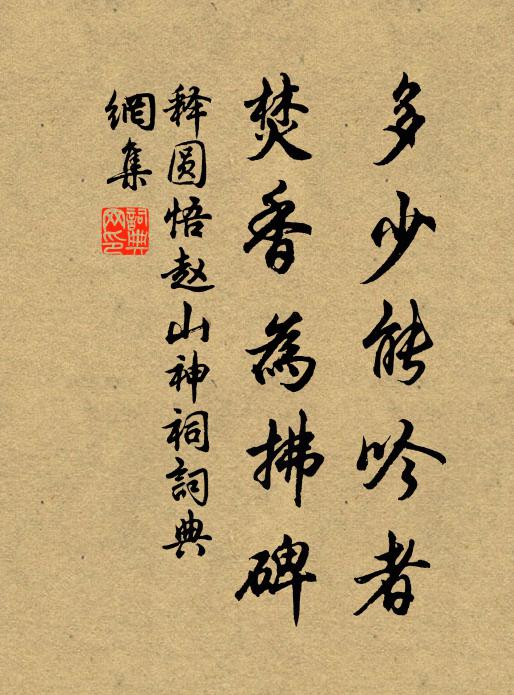 多少能吟者
焚香為拂碑
释圆悟赵山神祠詞典
網集
詞典
网印